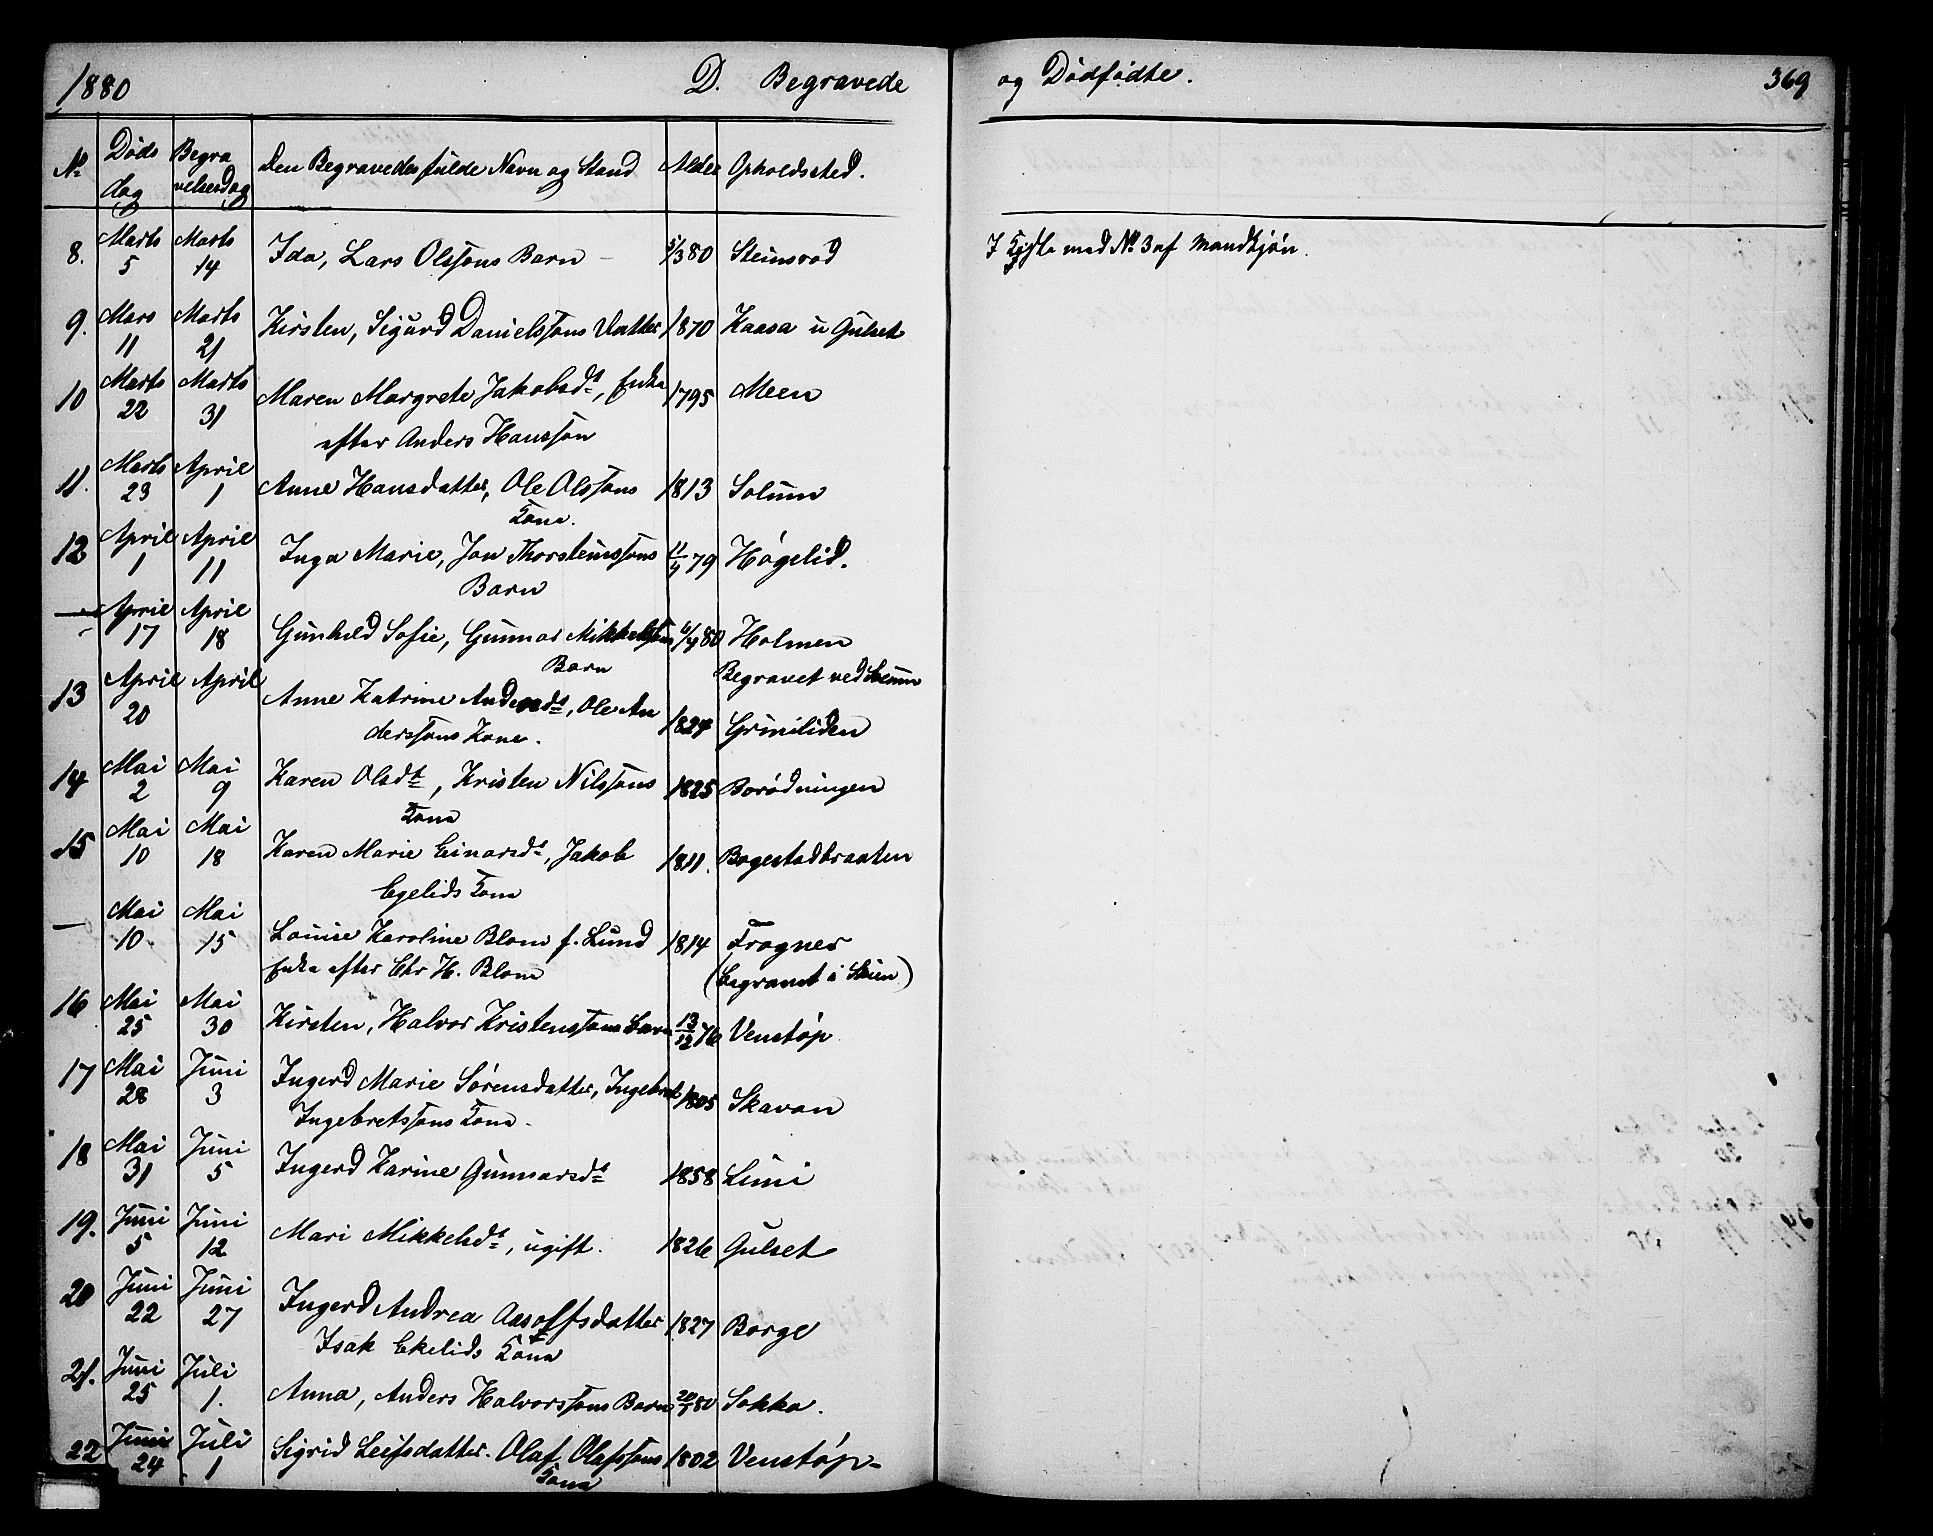 1880 D. Begravede
og Dødfødte. 369
No Døds dag Begravelsesdag Den Begravedes fulde Navn og Stand Alder Opholdssted.
8. Marts 5 Marts 14 Ida, Lars Olssons Barn – 5/3 80 Steinsrød
I Kiste med No 3 af Mandkjøn.
9. Mars 11 Marts 21 Kirsten, Sigurd Danielssons Datter 1870 Kaasa u Gulset
10 Marts 22 Marts 31 Maren Margrete Jakobsdt, Enke 1795 Meen
efter Anders Hansson
11. Marts 23 April 1 Anne Hansdatter, Ole Olssons 1813 Solum
Kona.
12 April 1 April 11 Inga Marie, Jon Thorsteinssons 79 Høgelid.
Barn
— April 17 April 18 Gunhild Sofie, Gunnar Mikkelssons 6/4 80 Holmen
Barn Begravet ved
13 April 20 April Anne Katrine Andersdt, Ole An 1824 Griniliden
derssons Kone.
14 Mai 2 Mai 9 Karen Olsdt, Kristen Nilssons 1825 Borødningen
Kona
15 Mai 10 Mai 18 Karen Marie Einarsdt, Jakob 1811. Bogestadbraaten
Egelids Kona
— Mai 10 Mai 15 Louise Karoline Blom f. Lund 1814 Frogner
Enke efter Chr H. Blom (begravet i Skien)
16 Mai 25 Mai 30 Kirsten, Halvor Kristenssons Barn 13/12 76 Venstøp
17 Mai 28 Juni 3 Ingerd Marie Sørensdatter, Ingebret 1805 Skavan
Ingebretssons Kona.
18 Mai 31 Juni 5 Ingerd Karine Gunnarsdt 1858 Limi
19. Juni 5 Juni 12 Mari Mikkelsdt, ugift. 1826 Gulset
20 Juni 22 Juni 27 Ingerd Andrea Aasolfsdatter 1827 Borge
Isak Ekelids Kona
21. Juni 25 Juli 1. Anna, Anders Halvorssons Barn 80 Sokka.
22 Juni 24 Juli 1 Sigrid Leifsdatter. Olaf Olafssons 1802 Venstøp
Kona